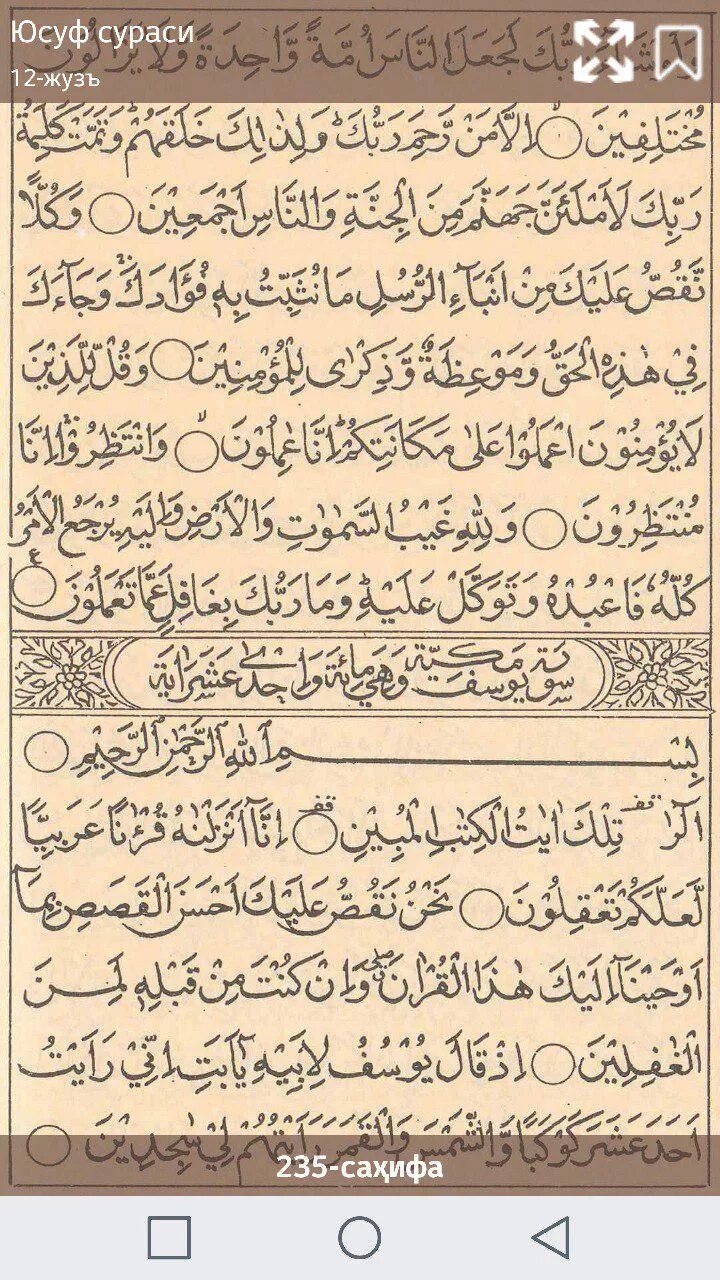 Юсуф сураси
12-жузъ
وَلَوْ شَآءَ رَبُّكَ لَجَعَلَ النَّاسَ اُمَّةً وَّاحِدَةً وَّلَا يَزَالُوْنَ
مُخْتَلِفِيْنَ ۙ اِلَّا مَنْ رَّحِمَ رَبُّكَ ؕ وَلِذٰلِكَ خَلَقَهُمْ ؕ وَتَمَّتْ كَلِمَةُ
رَبِّكَ لَاَمْلَئَنَّ جَهَنَّمَ مِنَ الْجِنَّةِ وَالنَّاسِ اَجْمَعِيْنَ ○ وَكُلًّا
نَّقُصُّ عَلَيْكَ مِنْ اَنْۢبَآءِ الرُّسُلِ مَا نُثَبِّتُ بِهٖ فُؤَادَكَ ۚ وَجَآءَكَ
فِيْ هٰذِهِ الْحَقُّ وَمَوْعِظَةٌ وَّذِكْرٰى لِلْمُؤْمِنِيْنَ ○ وَقُلْ لِّلَّذِيْنَ
لَا يُؤْمِنُوْنَ اعْمَلُوْا عَلٰى مَكَانَتِكُمْ ؕ اِنَّا عٰمِلُوْنَ ۙ وَانْتَظِرُوْا ۚ اِنَّا
مُنْتَظِرُوْنَ ○ وَلِلّٰهِ غَيْبُ السَّمٰوٰتِ وَالْاَرْضِ وَاِلَيْهِ يُرْجَعُ الْاَمْرُ
كُلُّهٗ فَاعْبُدْهُ وَتَوَكَّلْ عَلَيْهِ ؕ وَمَا رَبُّكَ بِغَافِلٍ عَمَّا تَعْمَلُوْنَ ○ ع
سورة يوسف مكية وهي مائة واحدى عشر اية
بِسْمِ اللّٰهِ الرَّحْمٰنِ الرَّحِيْمِ ○
الٓرٰ قف تِلْكَ اٰيٰتُ الْكِتٰبِ الْمُبِيْنِ ○ قف اِنَّآ اَنْزَلْنٰهُ قُرْءٰنًا عَرَبِيًّا
لَّعَلَّكُمْ تَعْقِلُوْنَ ○ نَحْنُ نَقُصُّ عَلَيْكَ اَحْسَنَ الْقَصَصِ بِمَآ
اَوْحَيْنَآ اِلَيْكَ هٰذَا الْقُرْاٰنَ ۖ وَاِنْ كُنْتَ مِنْ قَبْلِهٖ لَمِنَ
الْغٰفِلِيْنَ ○ اِذْ قَالَ يُوْسُفُ لِاَبِيْهِ يٰٓاَبَتِ اِنِّيْ رَاَيْتُ
اَحَدَ عَشَرَ كَوْكَبًا وَّالشَّمْسَ وَالْقَمَرَ رَاَيْتُهُمْ لِيْ سٰجِدِيْنَ ○
235-саҳифа